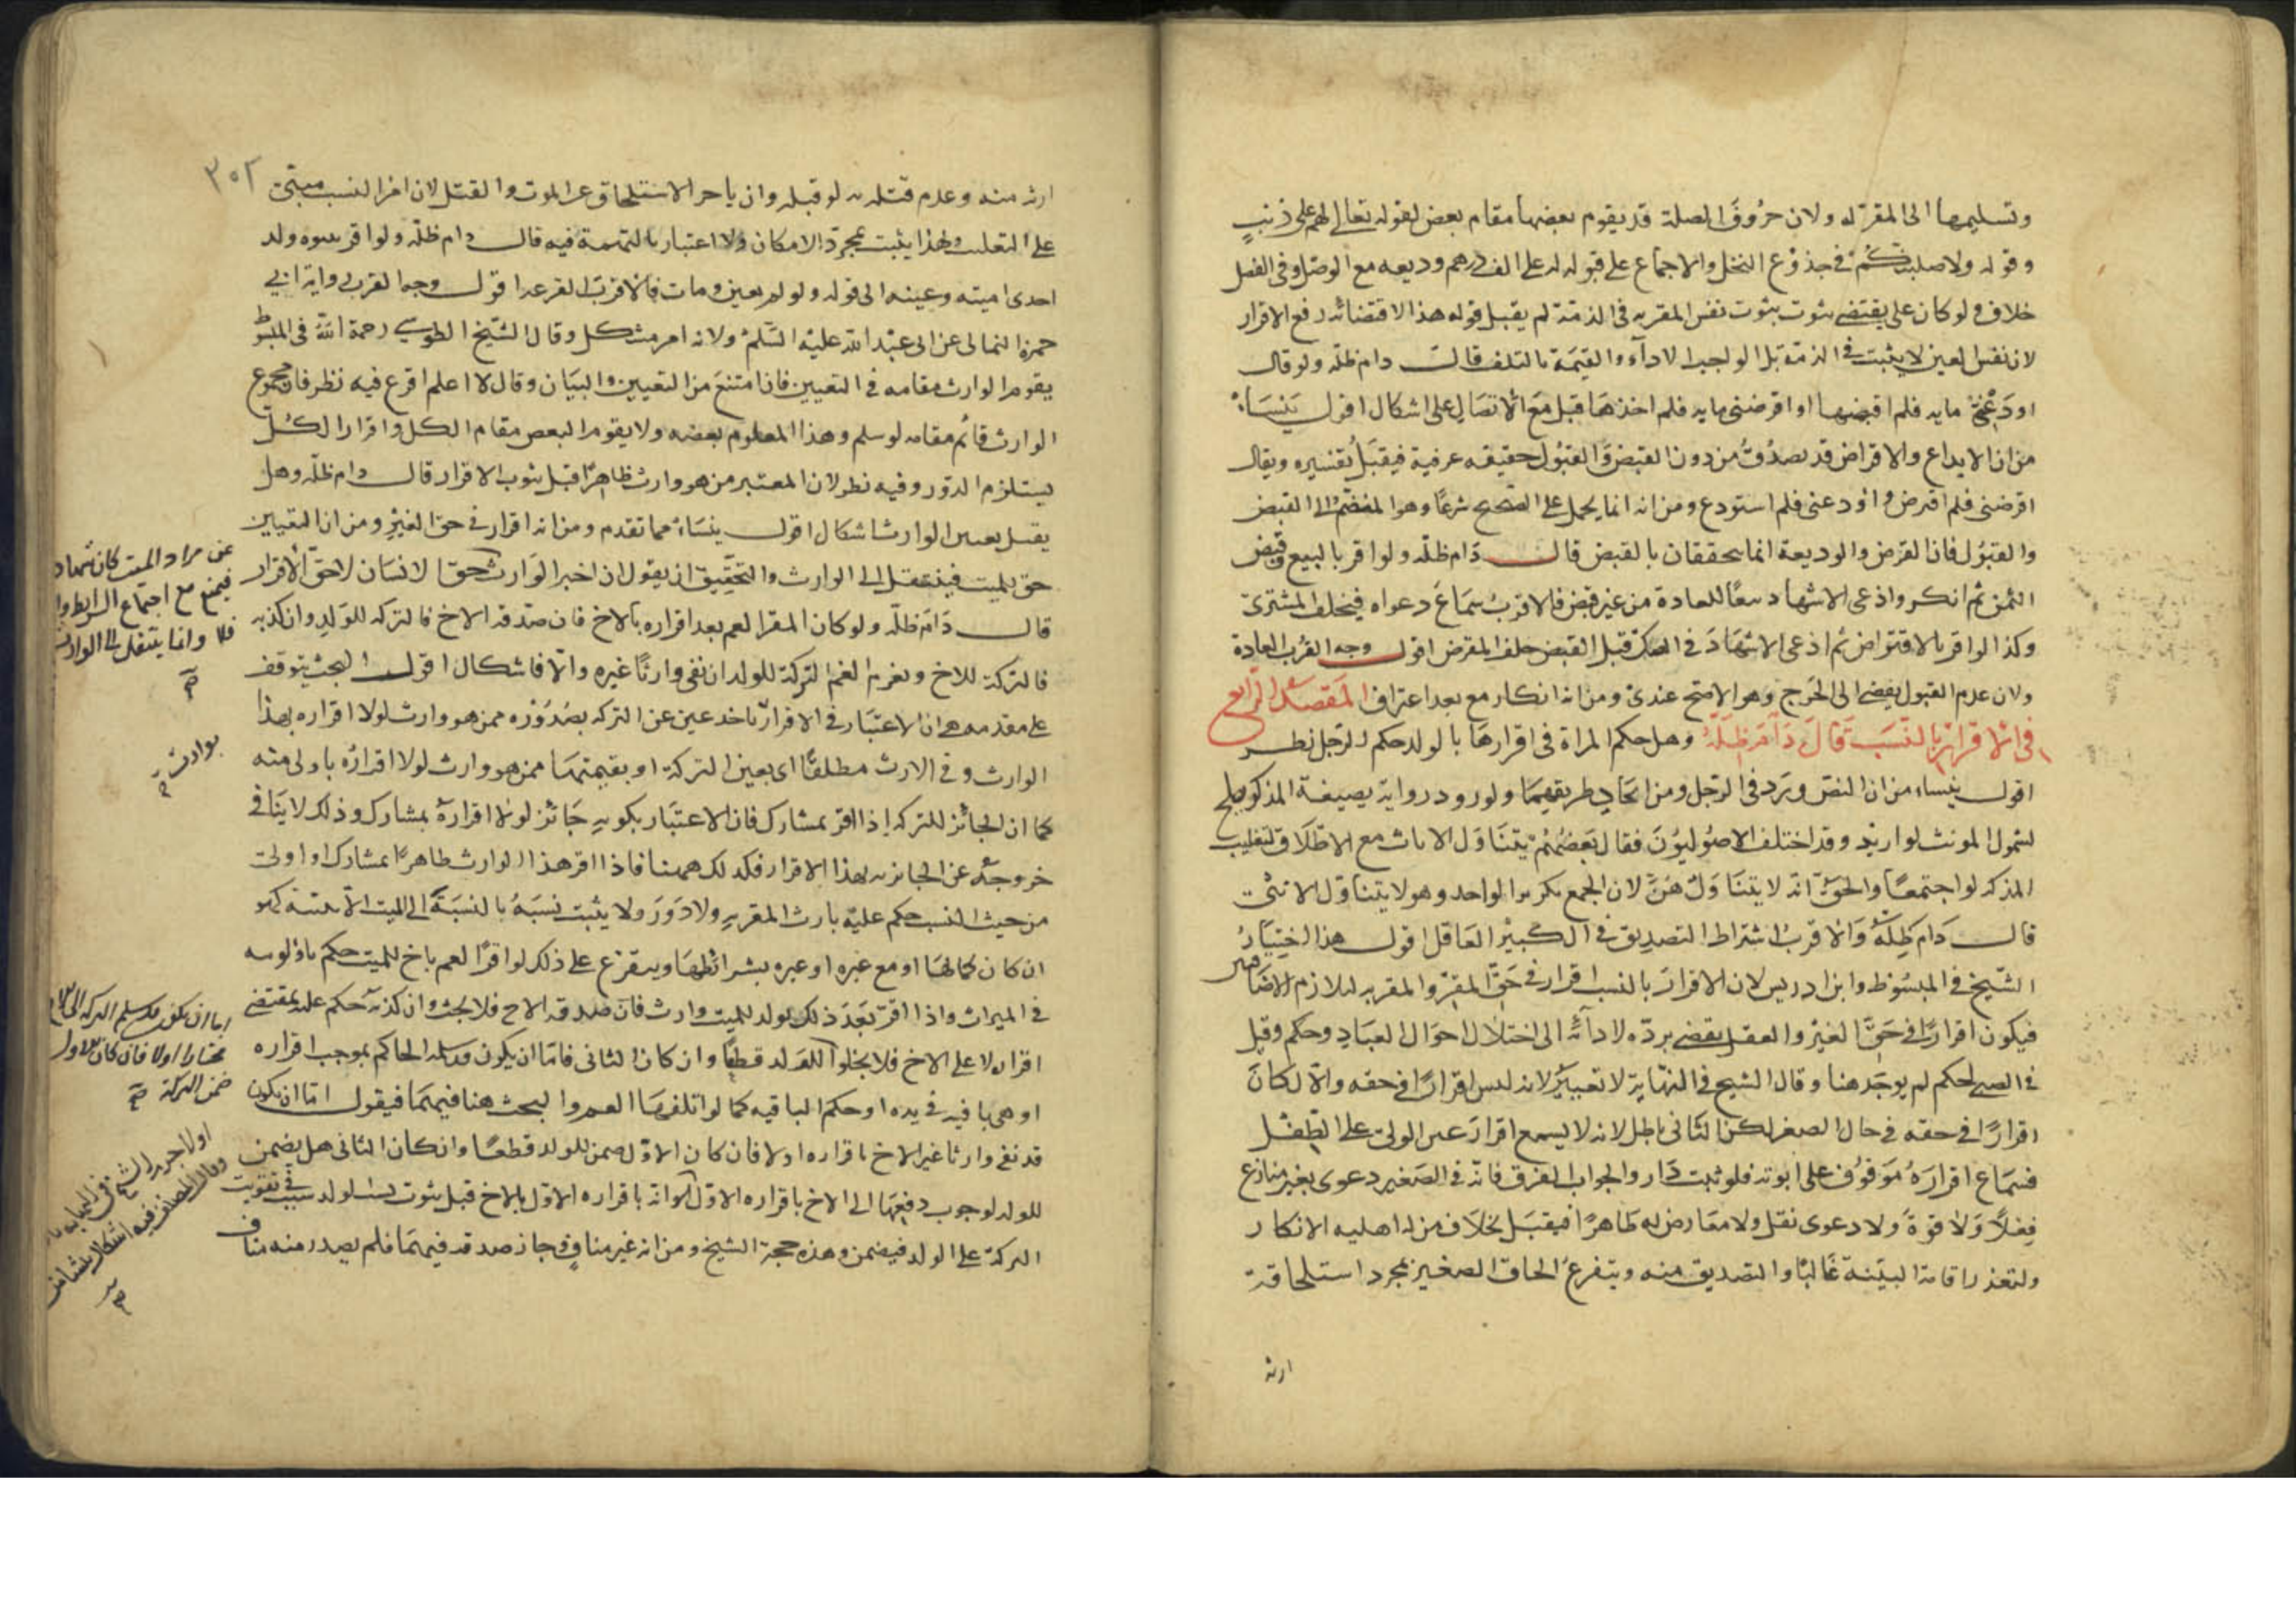 وتسليمها الى المقر له ولان حروف الصلة قد يقوم بعضها مقام بعض لقوله تعالى لهم على ذنب
وقوله ولاصلبنكم في جذوع النخل والاجماع على قبوله له على الف درهم وديعه مع الوصل وفي الفصل
خلاف ولو كان على يقتضي ثبوت نفس المقر به في الذمة لم يقبل قوله هذا لاقتضائه رفع الاقرار
لان نفس العين لا يثبت في الذمة بل الواجب الاداء والقيمة بالتلف قال دام ظله ولو قال
اودعني مايه فلم اقبضها او اقرضني مايه فلم اخذها قبل مع الاتصال على اشكال اقول ينشاء
من ان الايداع والاقراض قد يصدق من دون القبض والقبول حقيقه عرفية فيقبل تفسيره ويقال
اقرضني فلم اقترض واودعني فلم استودع ومن انه انما يحمل على الصحيح شرعا وهو المنضم الى القبض
والقبول فان القرض والوديعة انما يتحققان بالقبض قال دام ظله ولو اقر بالبيع وقبض
الثمن ثم انكر وادعى الاشهاد تبعا للعادة من غير قبض فالاقرب سماع دعواه فيحلف المشترى
وكذا لو اقر بالاقتراض ثم ادعى الاشهاد في الصك قبل القبض حلف المقرض اقول وجه القرب العادة
ولان عدم القبول يفضي الى الحرج وهو الاصح عندي ومن انه انكار مع بعد اعتراف المقصد الرابع
في الاقرار بالنسب قال دام ظله وهل حكم المراة في اقرارها بالولد حكم الرجل نظر
اقول ينشاء من ان النص ورد في الرجل ومن اتحاد طريقيهما ولورود رواية بصيغة المذكر يصلح
لشمول المونث لو اريد وقد اختلف الاصوليون فقال بعضهم يتناول الاناث مع الاطلاق لتغليب
المذكر لو اجتمعا والحق انه لا يتناولهن لان الجمع تكرير الواحد وهو لا يتناول الانثى
قال دام ظله والاقرب اشتراط التصديق في الكبير العاقل اقول هذا اختيار
الشيخ في المبسوط وابن ادريس لان الاقرار بالنسب اقرار في حق المقر والمقر به لتلازم الاضافه
فيكون اقرارا في حق الغير والعقل يقضي برده لادائه الى اختلال احوال العباد وحكم وقبل
في الصبي لحكم لم يوجد هنا وقال الشيخ في النهاية لا تعتبر لانه ليس اقرارا في حقه والا لكان
اقرارا في حقه في حال الصغر لكن الثاني باطل لانه لا يسمع اقرار غير الولي على الطفل
فسماع اقراره موقوف على ابوته فلو ثبت دار والجواب الفرق فانه في الصغير دعوى بغير منازع
فعلا ولا قوة ولا دعوى نقل ولا معارض له ظاهرا فيقبل بخلاف من له اهليه الانكار
ولتعذر اقامة البينة غالبا والتصديق منه ويتفرع الحاق الصغير بمجرد استلحاقه
ارثه
٣٥٢
ارثه منه وعدم قتله به لو قبله وان تاخر الاستلحاق عن الموت والقتل لان امر النسب مبني
على التغليب ولهذا يثبت بمجرد الامكان ولا اعتبار بالتهمة فيه قال دام ظله ولو اقر ببنوة ولد
احدى امتيه وعينه الى قوله ولو لم يعين ومات فالاقرب القرعه اقول وجه القرب رواية ابي
حمزة الثمالي عن ابي عبد الله عليه السلم ولانه امر مشكل وقال الشيخ الطوسي رحمة الله في المبسوط
يقوم الوارث مقامه في التعيين فان امتنع من التعيين والبيان وقال لا اعلم اقرع فيه نظر فان مجموع
الوارث قائم مقامه لو سلم وهذا المعلوم بعضه ولا يقوم البعض مقام الكل واقرار الكل
يستلزم الدور وفيه نظر لان المعتبر من هو وارث ظاهرا قبل ثبوت الاقرار قال دام ظله وهل
يقبل تعيين الوارث اشكال اقول ينشاء مما تقدم ومن انه اقرار في حق الغير ومن ان التعيين
حق للميت فينتقل الى الوارث والتحقيق ان يقول ان اخبر الوارث حقا لانسان لاحق الاقرار
قال دام ظله ولو كان المقر العم بعد اقراره بالاخ فان صدقه الاخ فالتركه للولد وان كذبه
فالتركة للاخ ويغرم العم التركة للولد ان نفى وارثا غيره والا فاشكال اقول البحث يتوقف
على مقدمه هي ان الاعتبار في الاقرار باخذ عين عن التركه بصدوره ممن هو وارث لولا اقراره بهذا
الوارث وفي الارث مطلقا اي بعين التركة او بقيمتها ممن هو وارث لولا اقراره باولى منه
كما ان الجائز للتركه اذا اقر بمشارك فان الاعتبار بكونه جائز لولا اقراره بمشارك وذلك لا ينافي
خروجه عن الجائزيه بهذا الاقرار فكذلك ههنا فاذا اقر هذا الوارث ظاهرا بمشارك او اولى
من حيث النسب حكم عليه بارث المقر به ولا دور ولا يثبت نسبه بالنسبة الى الميت الا ببينة كهو
ان كان كمالها او مع غيره او غيره بشرائطها ويتفرع على ذلك لو اقر العم باخ للميت حكم باولويته
في الميراث واذا اقر بعد ذلك بولد للميت وارث فان صدقه الاخ فلا بحث وان كذبه حكم عليه بمقتضى
اقراره لا على الاخ فلا يخلوا للولد قطعا وان كان الثاني فاما ان يكون قد سلمه الحاكم بموجب اقراره
او هي باقيه في يده او حكم الباقيه كما لو اتلفها العم والبحث هنا فيهما فيقول اما ان يكون
قد نفى وارثا غير الاخ باقراره اولا فان كان الاول ضمن للولد قطعا وان كان الثاني هل يضمن
للولد لوجوب دفعها الى الاخ باقراره الاول لو انه باقراره الاول بالاخ قبل ثبوت نسب الولد سبب في تفويت
التركة على الولد فيضمن وهذه حجة الشيخ ومن انه غير مناف فجاز صدقه فيهما فلم يصدر منه مناف
عن مراد الميت كان شهادة
فيمنع مع اجتماع الشرايط والا
فلا وانما ينتقل الى الوارث
صح
بوارث صح
اما ان يكون قد سلم التركه الى الاخ
مختارا اولا فان كان الاول
ضمن التركة صح
وقال المصنف فيه اشكال ينشا من
صح